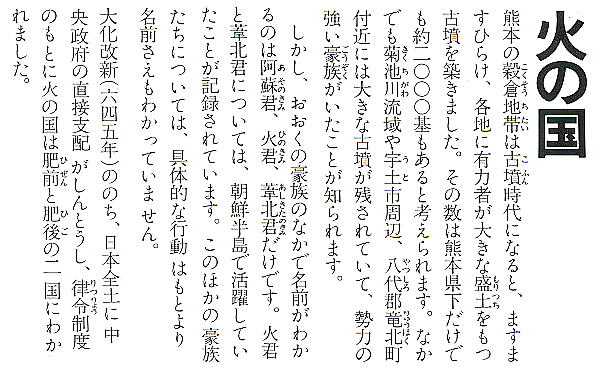 火の国
熊本の穀倉地帯は古墳時代になると、ますま
すひらけ、各地に有力者が大きな盛土をもつ
古墳を築きました。その数は熊本県下だけで
も約二〇〇〇基もあると考えられます。なか
でも菊池川流域や宇土市周辺、八代郡竜北町
付近には大きな古墳が残されていて、勢力の
強い豪族がいたことが知られます。
しかし、おおくの豪族のなかで名前がわか
るのは阿蘇君、火君、葦北君だけです。火君
と葦北君については、朝鮮半島で活躍してい
たことが記録されています。このほかの豪族
たちについては、具体的な行動はもとより
名前さえもわかっていません。
大化改新(六四五年)ののち、日本全土に中
央政府の直接支配がしんとうし、律令制度
のもとに火の国は肥前と肥後の二国にわか
れました。